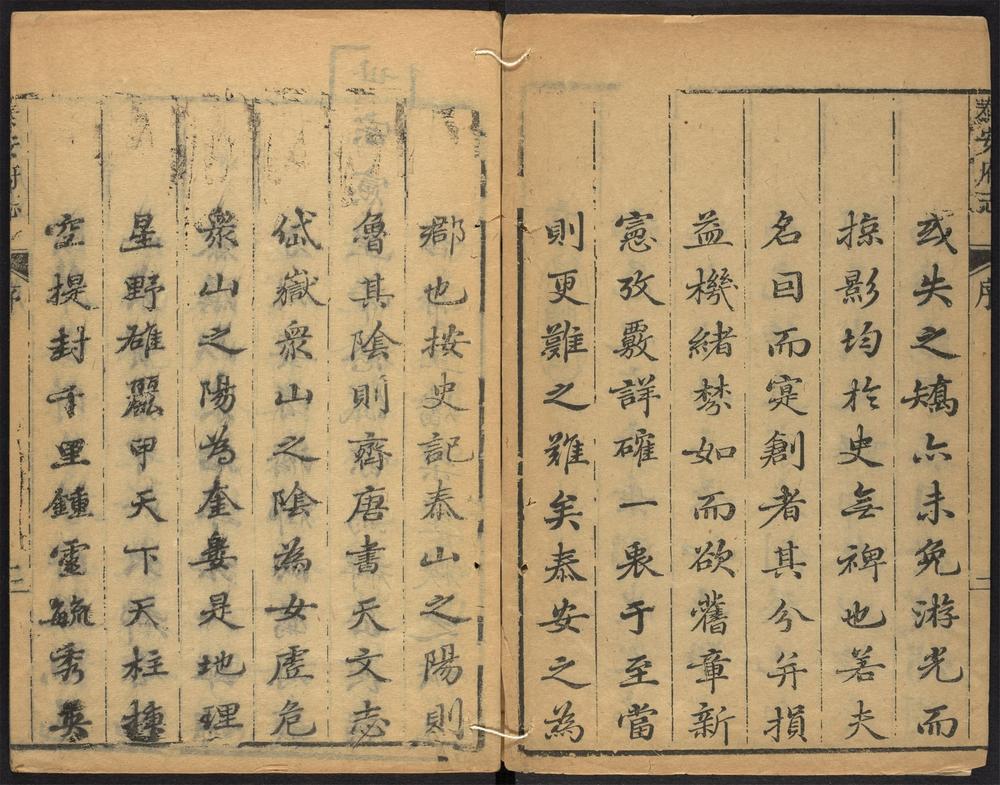 泰安府志
序
一
或失之矯亦未免游光而
掠影均於史無裨也若夫
名因而寔創者其分并損
益機緒棼如而欲舊章新
憲攷覈詳確一衷于至當
則更難之難矣泰安之為
郡也按史記泰山之陽則
魯其陰則齊唐書天文志
岱嶽眾山之陰為女虛危
眾山之陽為奎婁是地理
星野雄麗甲天下天柱
空提封千里鍾靈毓秀英
序
二